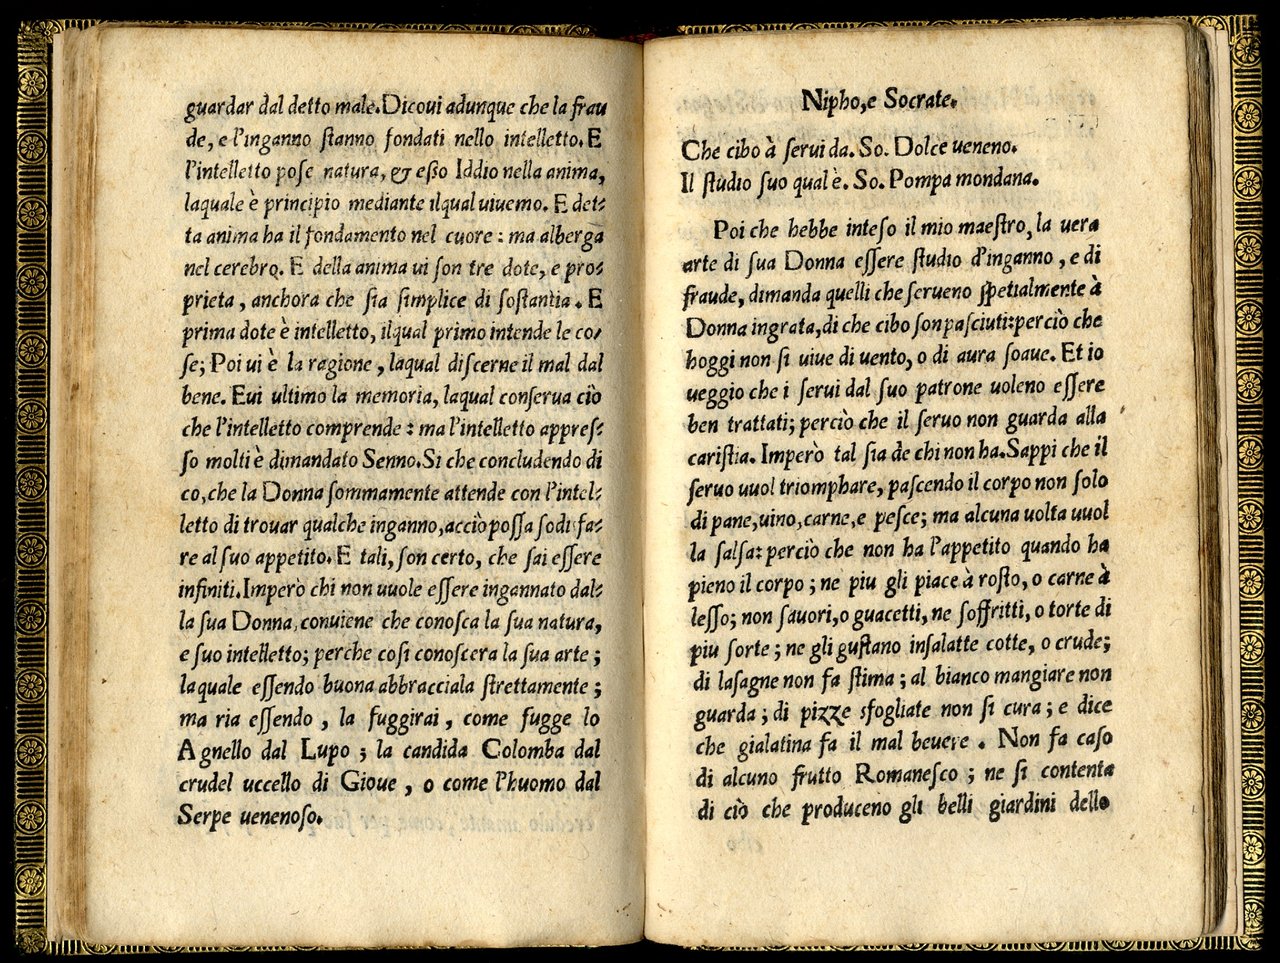 guardar dal detto male. Dicoui adunque che la frau
de, e l'inganno ſtanno fondati nello intelletto. E
l'intelletto poſe natura, & eſſo Iddio nella anima,
laquale è principio mediante ilqual uiuemo. E det⸗
ta anima ha il fondamento nel cuore : ma alberga
nel cerebro. E della anima ui ſon tre dote, e pro⸗
prieta, anchora che ſia ſimplice di ſoſtantia. E
prima dote è intelletto, ilqual primo intende le co⸗
ſe; Poi ui è la ragione, laqual diſcerne il mal dal
bene. Eui ultimo la memoria, laqual conſerua ciò
che l'intelletto comprende : ma l'intelletto appreſ⸗
ſo molti è dimandato Senno. Si che concludendo di
co, che la Donna ſommamente attende con l'intel⸗
letto di trouar qualche inganno, acciò poſſa ſodiſfa⸗
re al ſuo appetito. E tali, ſon certo, che ſai eſſere
infiniti. Imperò chi non uuole eſſere ingannato dal⸗
la ſua Donna, conuiene che conoſca la ſua natura,
e ſuo intelletto; perche coſi conoſcera la ſua arte ;
laquale eſſendo buona abbracciala ſtrettamente ;
ma ria eſſendo, la fuggirai, come fugge lo
Agnello dal Lupo ; la candida Colomba dal
crudel uccello di Gioue, o come l'huomo dal
Serpe uenenoſo.
Nipho, e Socrate.
Che cibo à ſerui da. So. Dolce ueneno.
Il ſtudio ſuo qual è. So. Pompa mondana.
Poi che hebbe inteſo il mio maeſtro, la uera
arte di ſua Donna eſſere ſtudio d'inganno, e di
fraude, dimanda quelli che ſerueno ſpetialmente à
Donna ingrata, di che cibo ſon paſciuti: perciò che
hoggi non ſi uiue di uento, o di aura ſoaue. Et io
ueggio che i ſerui dal ſuo patrone uoleno eſſere
ben trattati; perciò che il ſeruo non guarda alla
cariſtia. Imperò tal ſia de chi non ha. Sappi che il
ſeruo uuol triomphare, paſcendo il corpo non ſolo
di pane, uino, carne, e peſce; ma alcuna uolta uuol
la ſalſa: perciò che non ha l'appetito quando ha
pieno il corpo ; ne piu gli piace à roſto, o carne à
leſſo; non ſauori, o guacetti, ne ſoffritti, o torte di
piu ſorte ; ne gli guſtano inſalatte cotte, o crude;
di laſagne non fa ſtima ; al bianco mangiare non
guarda ; di pizze sfogliate non ſi cura ; e dice
che gialatina fa il mal beuere. Non fa caſo
di alcuno frutto Romaneſco ; ne ſi contenta
di ciò che produceno gli belli giardini dello